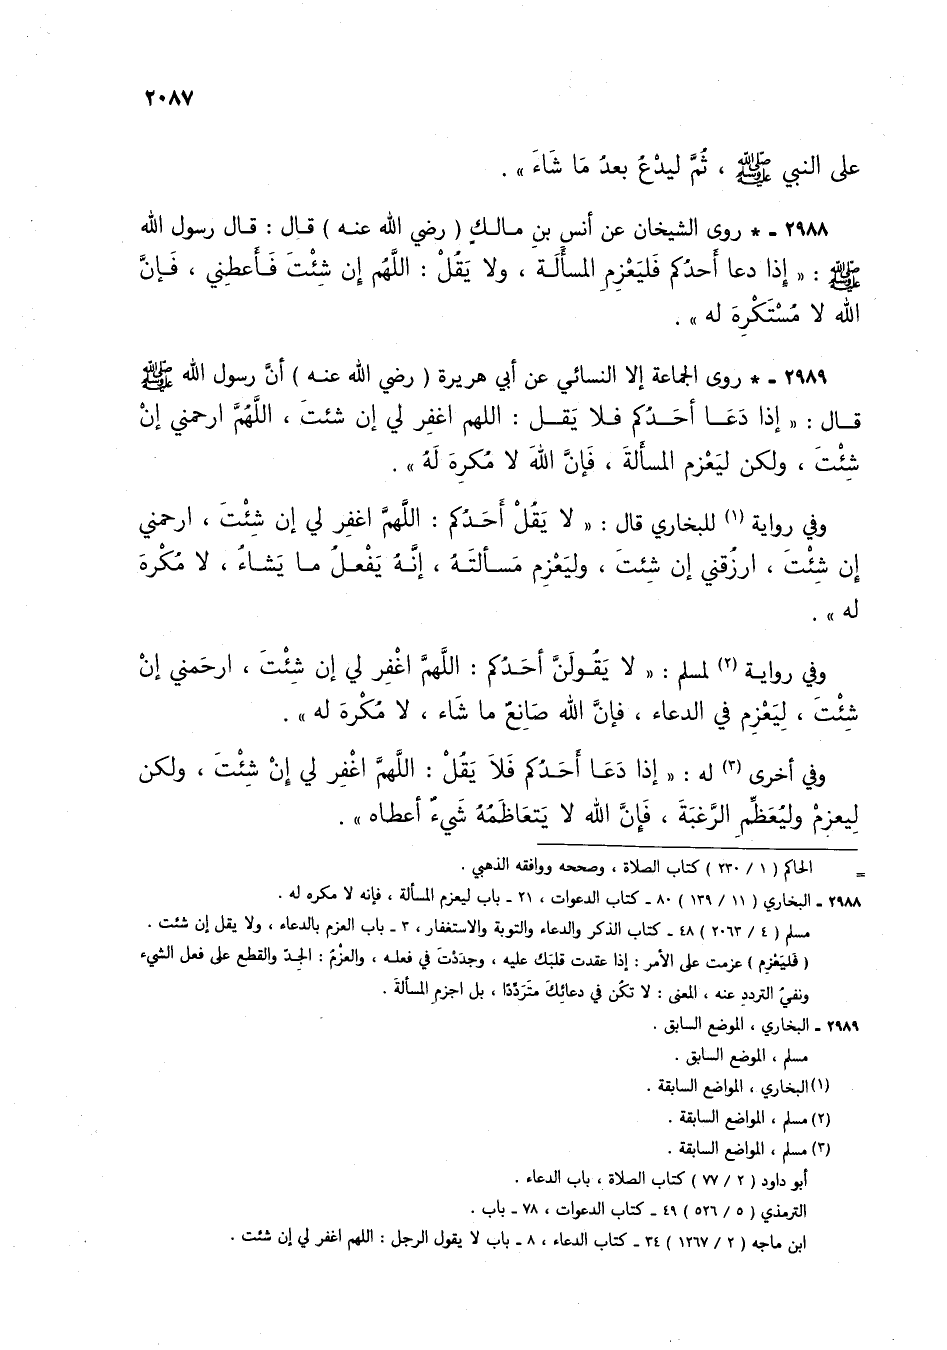 ٢٠٨٧
على النبي ﷺ ، ثُمَّ ليدْعُ بعدُ مَا شَاءَ » .
٢٩٨٨ ـ * روى الشيخان عن أنس بنِ مـالـكٍ ( رضي الله عنـه ) قـال : قـال رسول الله
ﷺ : « إِذا دعا أَحدُكم فَليَعْزِمِ المسأَلَـة ، ولا يَقُلْ : اللَّهُم إن شِئْتَ فَـأَعطني ، فَـإنَّ
الله لا مُسْتَكْرِهَ له » .
٢٩٨٩ ـ * روى الجماعة إلا النسائي عن أبي هريرة ( رضي الله عنـه ) أنَّ رسول الله ﷺ
قـال : « إذا دَعَـا أَحَـدُكم فـلا يَقـل : اللهم اغفر لي إن شئتَ ، اللَّهُمَّ ارحمني إنْ
شِئْتَ ، ولكن ليَعْزِم المسأَلةَ ، فَإنَّ اللهَ لا مُكرِهَ لَهُ » .
وفي رواية (١) للبخاري قال : « لا يَقُلْ أَحَـدُكم : اللَّهمَّ اغفر لي إن شِئْتَ ، ارحمني
إن شِئْتَ ، ارزُقني إن شِئتَ ، وليَعْزِم مَسـألتَـهُ ، إنَّـهُ يَفْعـلُ مـا يَشـاءُ ، لا مُكْرِهَ
له » .
وفي روايـة (٢) لمسلم : « لا يَقُـولَنَّ أحَـدُكم : اللَّهمَّ اغْفِر لي إن شِئْتَ ، ارحَمني إنْ
شِئْتَ ، لِيَعْزِم في الدعاء ، فإنَّ الله صَانِعٌ ما شَاء ، لا مُكْرِهَ له » .
وفي أخرى (٣) له : « إذا دَعَـا أَحَـدُكم فَلاَ يَقُلْ : اللَّهمَّ اغْفِر لي إِنْ شِئْتَ ، ولكن
لِيعزِمْ وليُعَظِّمِ الرَّغبَةَ ، فَإنَّ الله لا يَتعَاظَمُهُ شَيءٌ أعطاه » .
= الحاكم ( ١ / ٢٣٠ ) كتاب الصلاة ، وصححه ووافقه الذهبي .
٢٩٨٨ ـ البخاري ( ١١ / ١٣٩ ) ٨٠ ـ كتاب الدعوات ، ٢١ ـ باب ليعزم المسألة ، فإنه لا مكره له .
مسلم ( ٤ / ٢٠٦٣ ) ٤٨ ـ كتاب الذكر والدعاء والتوبة والاستغفار ، ٣ ـ باب العزم بالدعاء ، ولا يقل إن شئت .
( فَليَعْزِم ) عزمت على الأمر : إذا عقدت قلبَك عليه ، وجدَدْتَ في فعلـه ، والعزْمُ : الجدّ والقطع على فعل الشيء
ونفيُ الترددِ عنه ، المعنى : لا تكُن في دعائِكَ متَرَدِّدًا ، بل اجزم المسألةَ .
٢٩٨٩ ـ البخاري ، الموضع السابق .
مسلم ، الموضع السابق .
(١) البخاري ، المواضع السابقة .
(٢) مسلم ، المواضع السابقة .
(٣) مسلم ، المواضع السابقة .
أبو داود ( ٢ / ٧٧ ) كتاب الصلاة ، باب الدعاء .
الترمذي ( ٥ / ٥٢٦ ) ٤٩ ـ كتاب الدعوات ، ٧٨ ـ باب .
ابن ماجه ( ٢ / ١٢٦٧ ) ٣٤ ـ كتاب الدعاء ، ٨ ـ باب لا يقول الرجل : اللهم اغفر لي إن شئت .